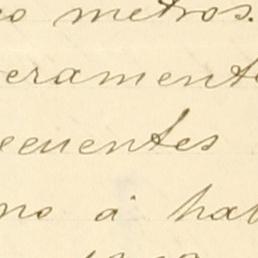 metros.
eramente
ecuentes
no á hab